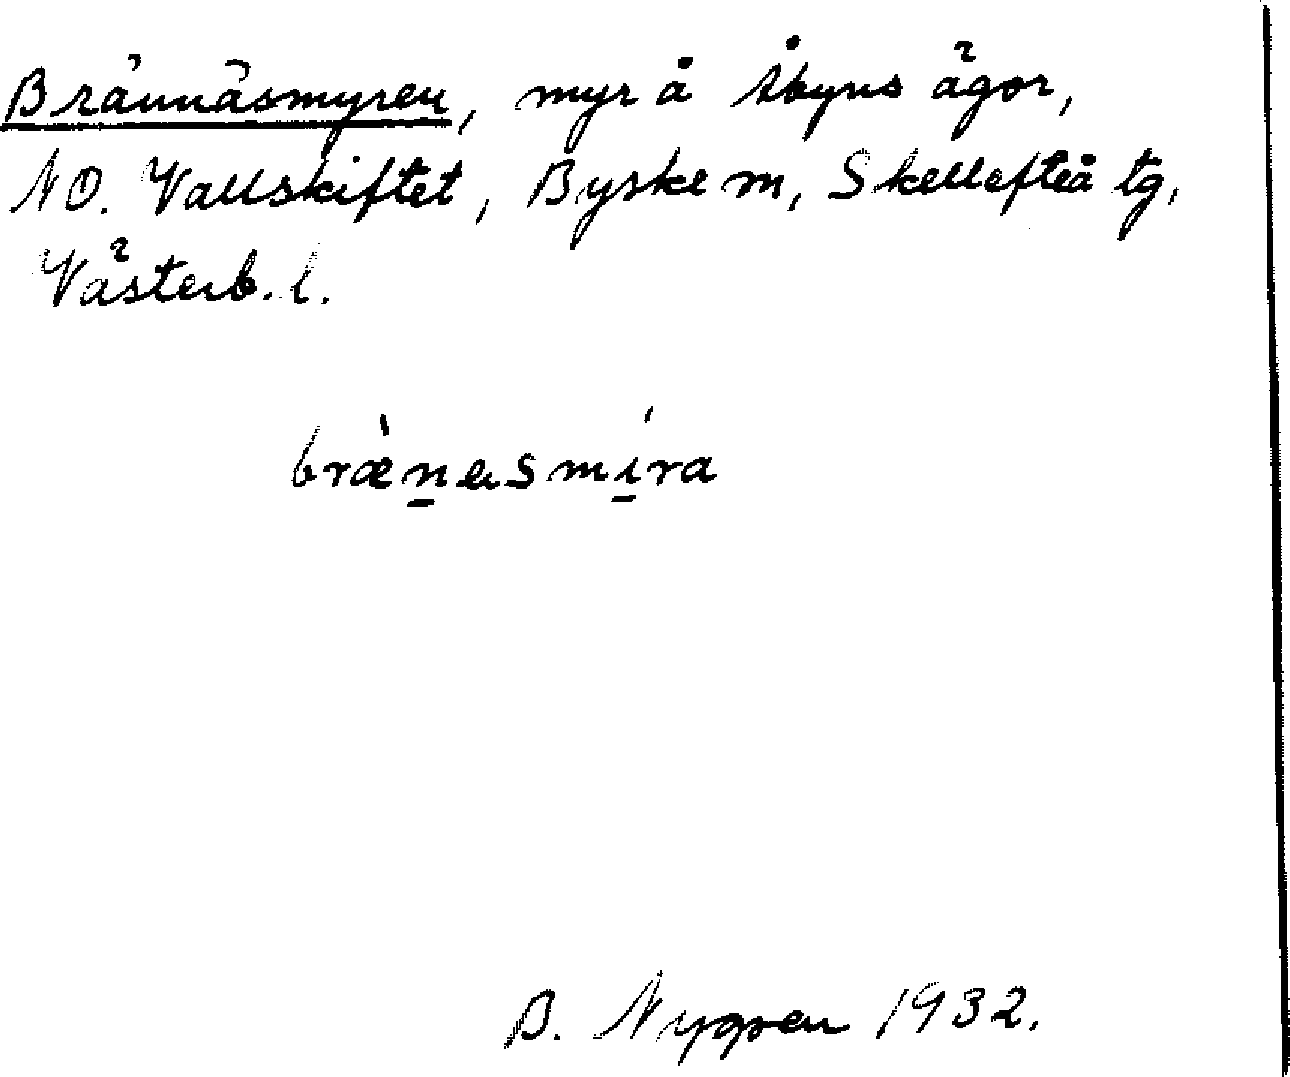 Brännäsmyren, myr å Åbyns ägor,
NO. Vallskiftet, Byske sn, Skellefteå tg,
Västerb. l.
bræ̀n̠asmí̠ra
B. Nygren 1932.